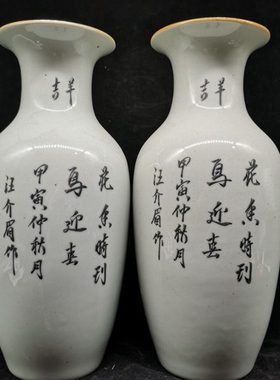 吉羊
花香時到
鳥迎春
甲寅仲秋月
汪介眉作
吉羊
花香時到
鳥迎春
甲寅仲秋月
汪介眉作